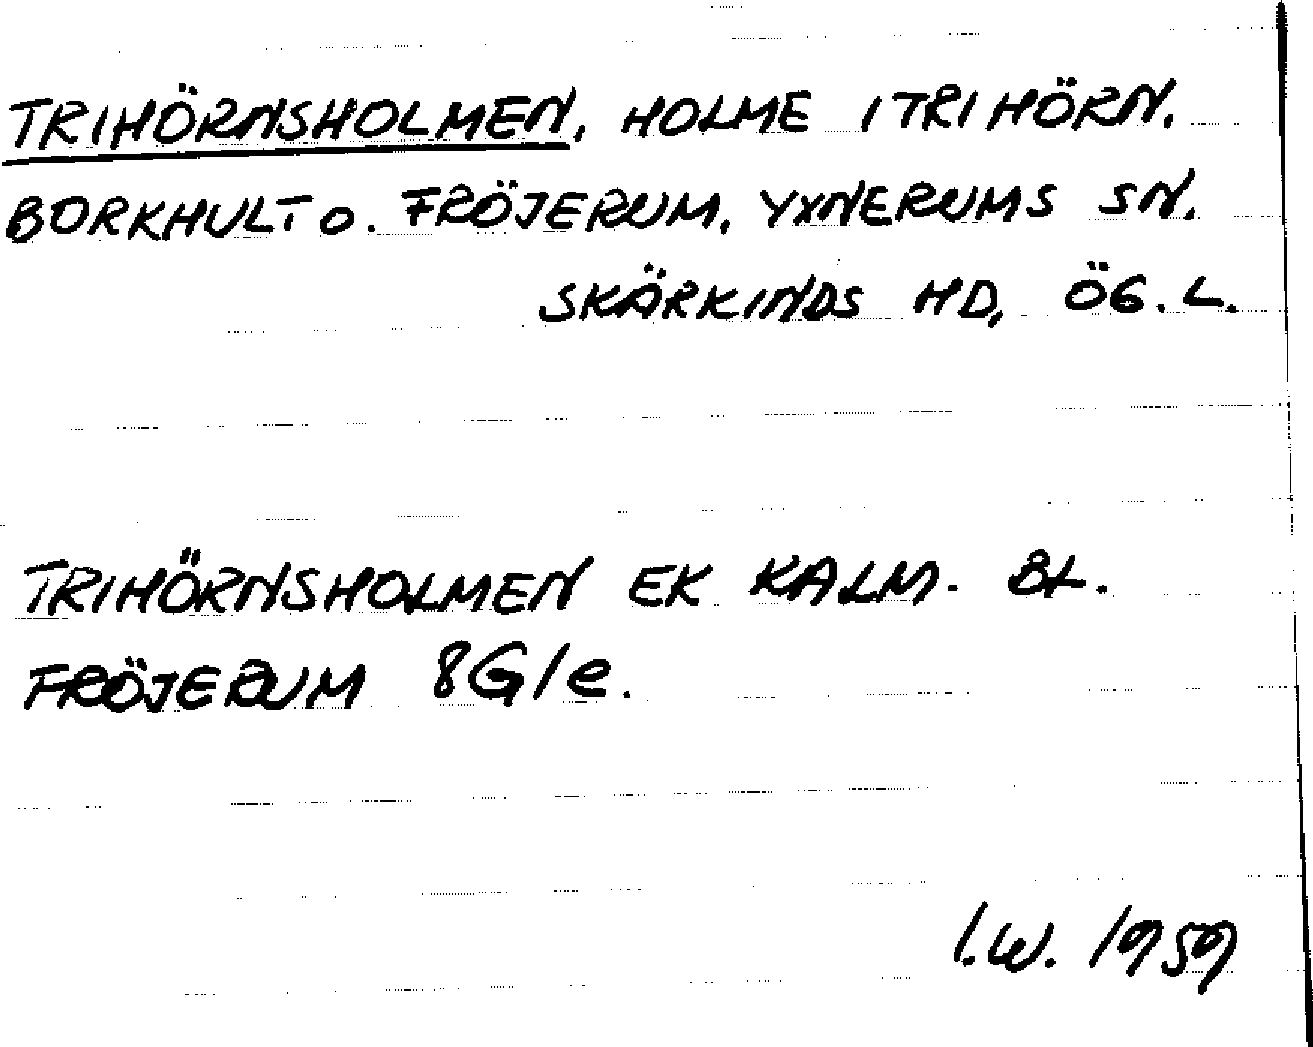 TRIHÖRNSHOLMEN, HOLME I TRIHÖRN.
BORKHULT O. FRÖJERUM, YXNERUMS SN.
SKÄRKINDS HD, ÖG. L.
TRIHÖRNSHOLMEN EK KALM. BL.
FRÖJERUM 8G/e.
I.W. 1959